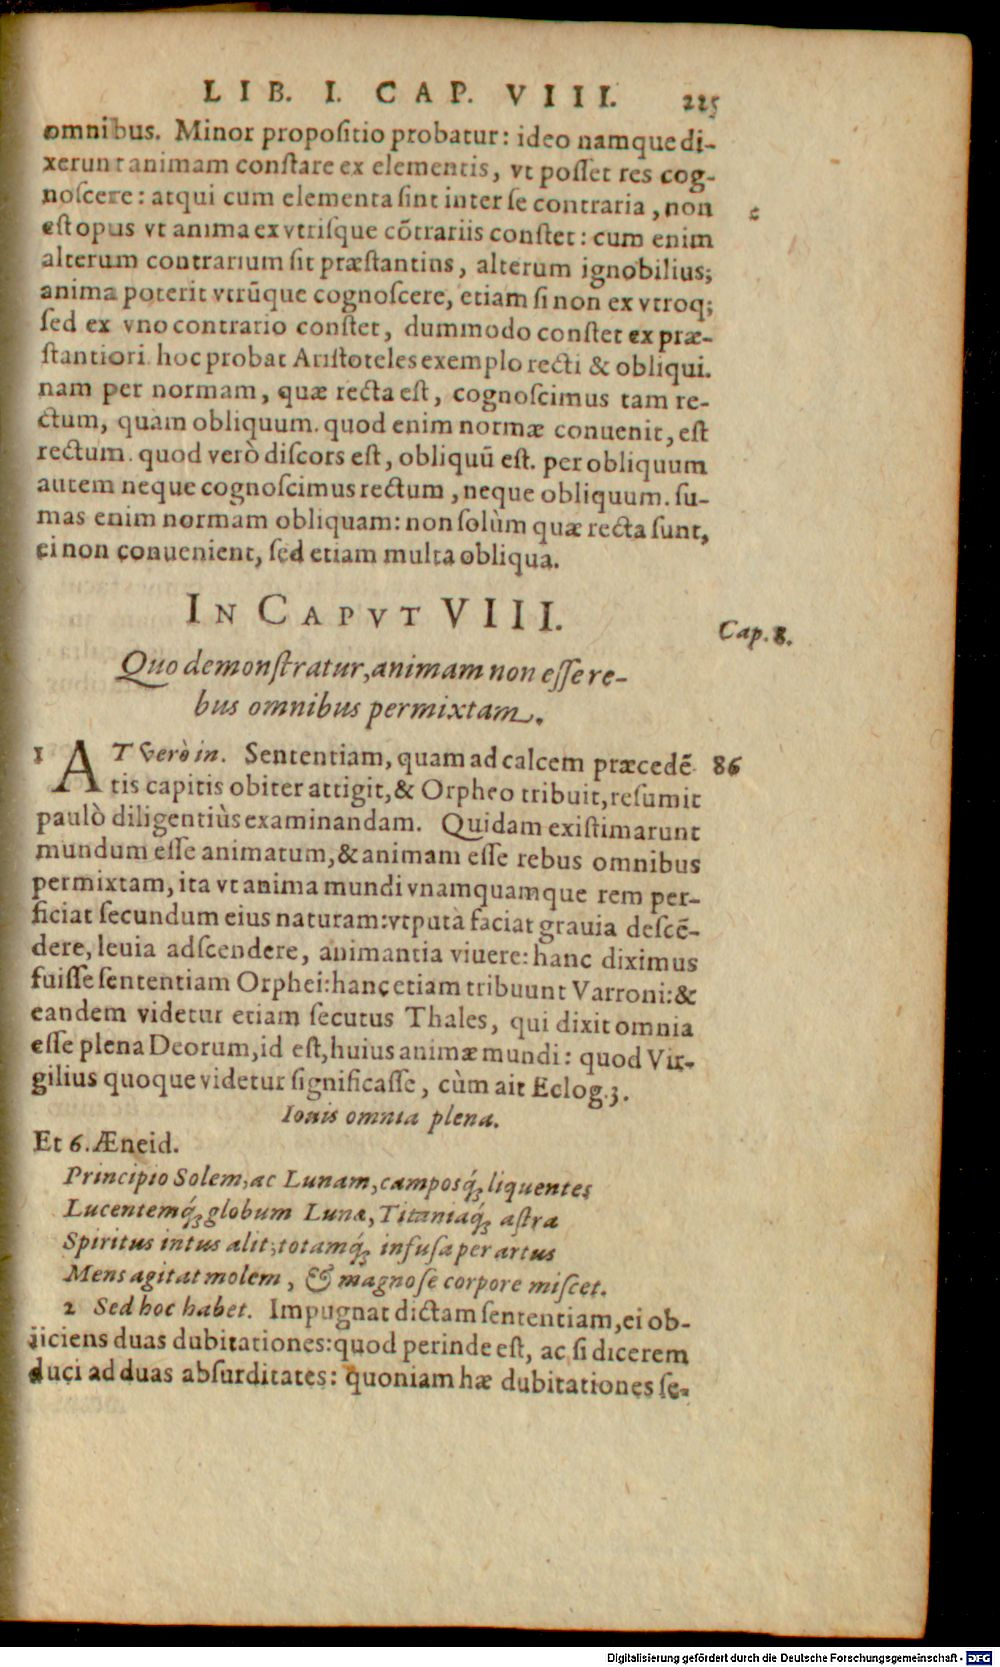 LIB. I. CAP. VIII. 225
omnibus. Minor propoſitio probatur: ideo namque di-
xerunt animam conſtare ex elementis, vt poſſet res cog-
noſcere: atqui cum elementa ſint inter ſe contraria, non
eſt opus vt anima ex vtriſque cõtrariis conſtet: cum enim
alterum contrarium ſit præſtantius, alterum ignobilius;
anima poterit vtrũque cognoſcere, etiam ſi non ex vtroq;
ſed ex vno contrario conſtet, dummodo conſtet ex præ-
ſtantiori. hoc probat Ariſtoteles exemplo recti & obliqui.
nam per normam, quæ recta eſt, cognoſcimus tam re-
ctum, quam obliquum. quod enim normæ conuenit, eſt
rectum. quod verò diſcors eſt, obliquũ eſt. per obliquum
autem neque cognoſcimus rectum, neque obliquum. ſu-
mas enim normam obliquam: non ſolùm quæ recta ſunt,
ei non conuenient, ſed etiam multa obliqua.
IN CAPVT VIII.
Cap. 8.
Quo demonſtratur, animam non eſſe re-
bus omnibus permixtam.
1 AT verò in. Sententiam, quam ad calcem præcedẽ 86
tis capitis obiter attigit, & Orpheo tribuit, reſumit
paulò diligentiùs examinandam. Quidam exiſtimarunt
mundum eſſe animatum, & animam eſſe rebus omnibus
permixtam, ita vt anima mundi vnamquamque rem per-
ficiat ſecundum eius naturam: vtputà faciat grauia deſcẽ-
dere, leuia adſcendere, animantia viuere: hanc diximus
fuiſſe ſententiam Orphei: hanc etiam tribuunt Varroni: &
eandem videtur etiam ſecutus Thales, qui dixit omnia
eſſe plena Deorum, id eſt, huius animæ mundi: quod Vir-
gilius quoque videtur ſignificaſſe, cùm ait Eclog. 3.
Iouis omnia plena.
Et 6. Æneid.
Principio Solem, ac Lunam, camposq́; liquentes
Lucentemq́; globum Lunæ, Titaniaq́; aſtra
Spiritus intus alit, totamq́; infuſa per artus
Mens agitat molem, & magno ſe corpore miſcet.
2 Sed hoc habet. Impugnat dictam ſententiam, ei ob-
iiciens duas dubitationes: quod perinde eſt, ac ſi dicerem
duci ad duas abſurditates: quoniam hæ dubitationes ſe-
Digitalisierung gefördert durch die Deutsche Forschungsgemeinschaft - DFG